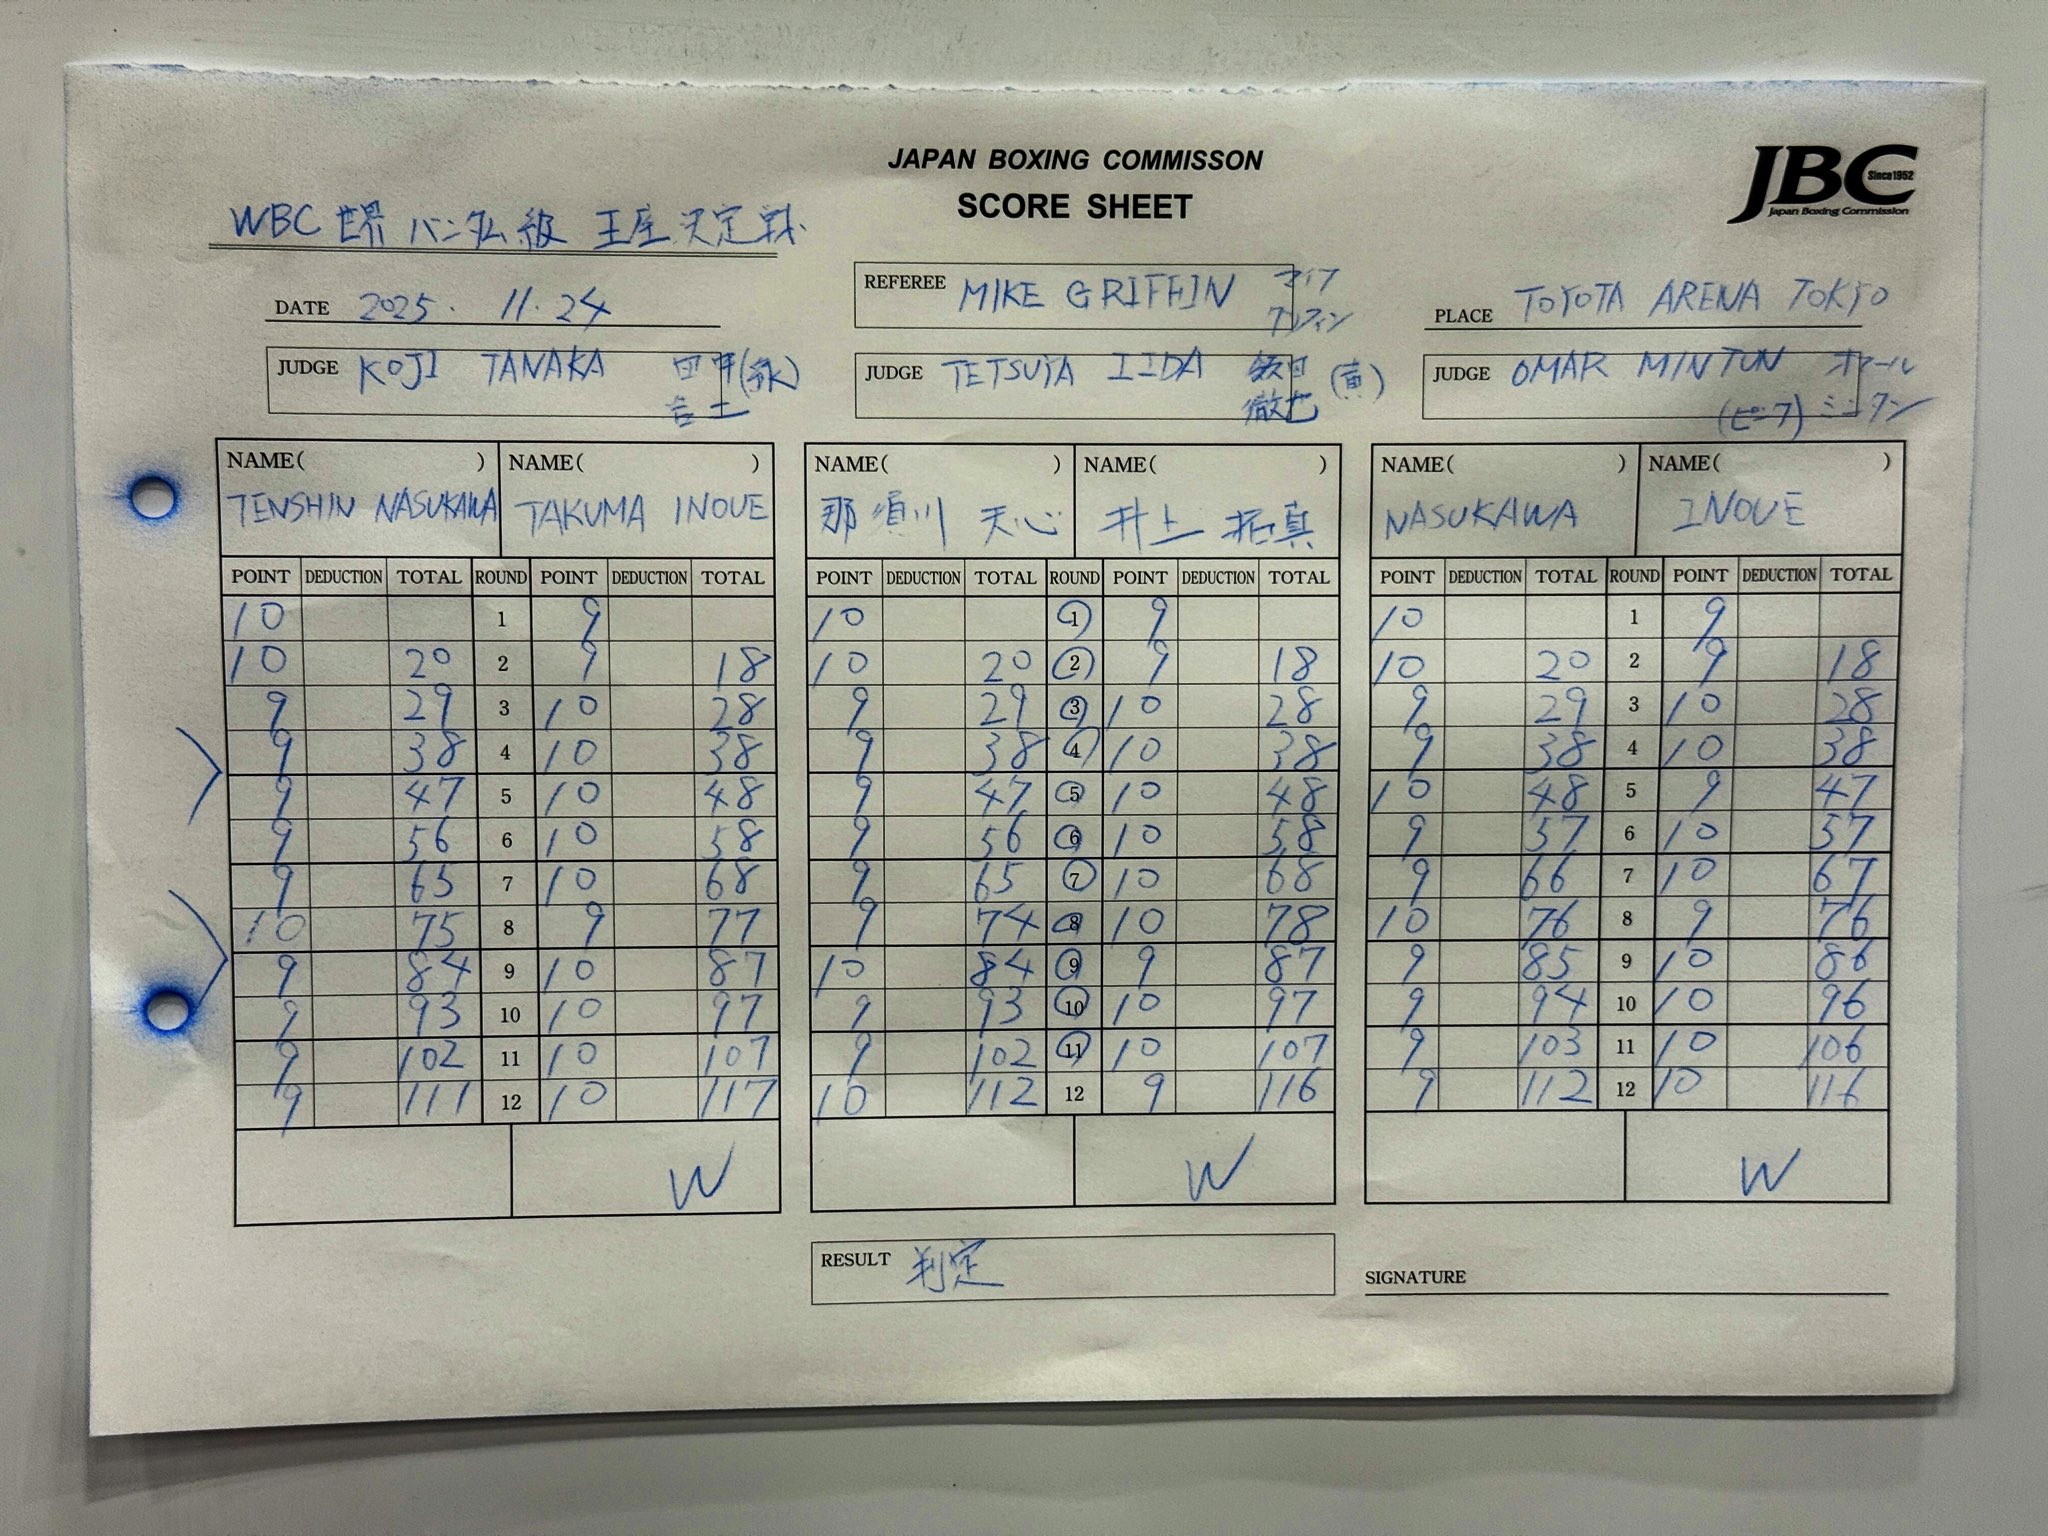 JAPAN BOXING COMMISSON
SCORE SHEET
JBC
Since1952
Japan Boxing Commission
WBC 世界 バンタム級 王座決定戦
DATE 2025. 11.24
REFEREE MIKE GRIFFIN マイク グリフィン
PLACE TOYOTA ARENA TOKYO
JUDGE KOJI TANAKA 田中
JUDGE TETSUYA IIDA 飯田 徹也 (黄)
JUDGE OMAR MINTUN オマール ミンタン (ピンク)
NAME( ) NAME( ) NAME( ) NAME( ) NAME( ) NAME( )
TENSHIN NASUKAWA TAKUMA INOUE 那須川 天心 井上 拓真 NASUKAWA INOUE
POINT DEDUCTION TOTAL ROUND POINT DEDUCTION TOTAL POINT DEDUCTION TOTAL ROUND POINT DEDUCTION TOTAL POINT DEDUCTION TOTAL ROUND POINT DEDUCTION TOTAL
10 1 9 10 1 9 10 1 9
10 20 2 9 18 10 20 2 9 18 10 20 2 9 18
9 29 3 10 28 9 29 3 10 28 9 29 3 10 28
9 38 4 10 38 9 38 4 10 38 9 38 4 10 38
9 47 5 10 48 9 47 5 10 48 10 48 5 9 47
9 56 6 10 58 9 56 6 10 58 9 57 6 10 57
9 65 7 10 68 9 65 7 10 68 9 66 7 10 67
10 75 8 9 77 9 74 8 10 78 10 76 8 9 76
9 84 9 10 87 10 84 9 9 87 9 85 9 10 86
9 93 10 10 97 9 93 10 10 97 9 94 10 10 96
9 102 11 10 107 9 102 11 10 107 9 103 11 10 106
9 111 12 10 117 10 112 12 9 116 9 112 12 10 116
W W W
RESULT 判定
SIGNATURE